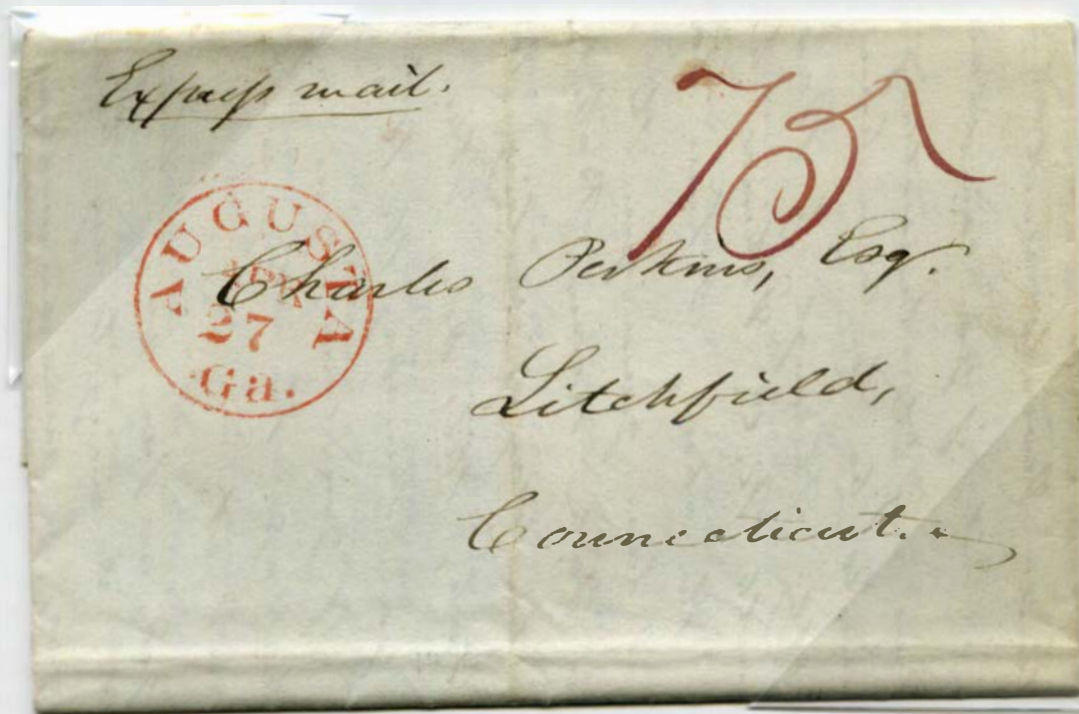 Express mail.
75
AUGUSTA
APR
27
Ga.
Charles Perkins, Esq.
Litchfield,
Connecticut.